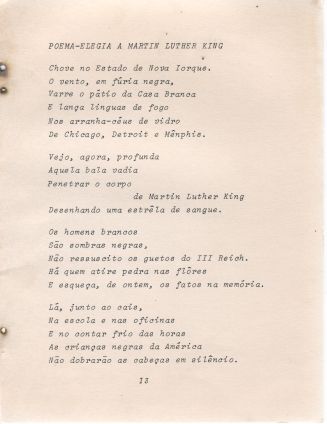 POEMA-ELEGIA A MARTIN LUTHER KING
Chove no Estado de Nova Iorque.
O vento, em fúria negra,
Varre o pátio da Casa Branca
E lança línguas de fogo
Nos arranha-céus de vidro
De Chicago, Detroit e Mênphis.
Vejo, agora, profunda
Aquela bala vadia
Penetrar o corpo
de Martin Luther King
Desenhando uma estrêla de sangue.
Os homens brancos
São sombras negras,
Não ressuscito os guetos do III Reich.
Há quem atire pedra nas flôres
E esqueça, de ontem, os fatos na memória.
Lá, junto ao cais,
Na escola e nas oficinas
E no contar frio das horas
As crianças negras da América
Não dobrarão as cabeças em silêncio.
13